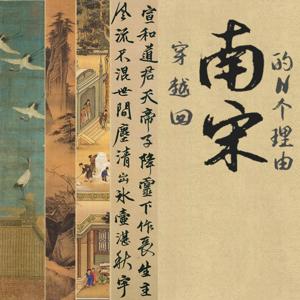 宣和道君天帝子降靈下作長生主
風流不混世間塵清出氷壺湛秋宇
穿越回
南宋
的N个理由